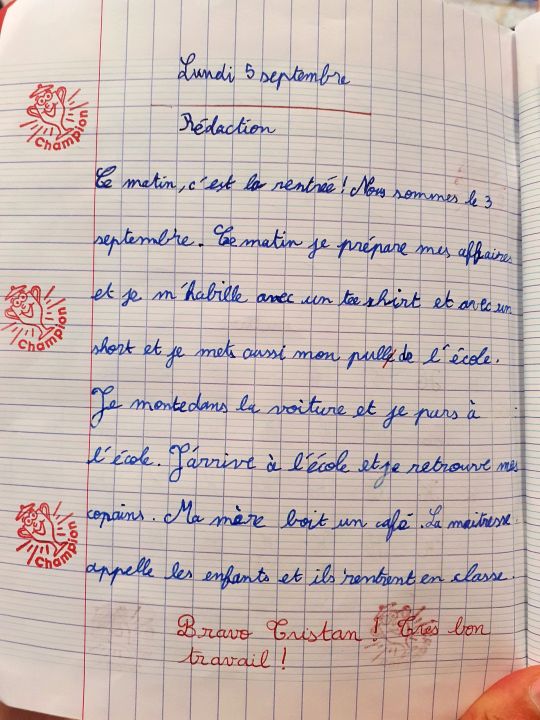 Lundi 5 septembre
Rédaction
Ce matin, c'est la rentrée ! Nous sommes le 3
septembre. Ce matin je prépare mes affaires
et je m'habille avec un tee shirt et avec un
short et je mets aussi mon pull de l'école.
Je monte dans la voiture et je pars à
l'école. J'arrive à l'école et je retrouve mes
copains. Ma mère boit un café. La maitresse
appelle les enfants et ils rentrent en classe.
Bravo Tristan ! Très bon
travail !
Champion
Champion
Champion